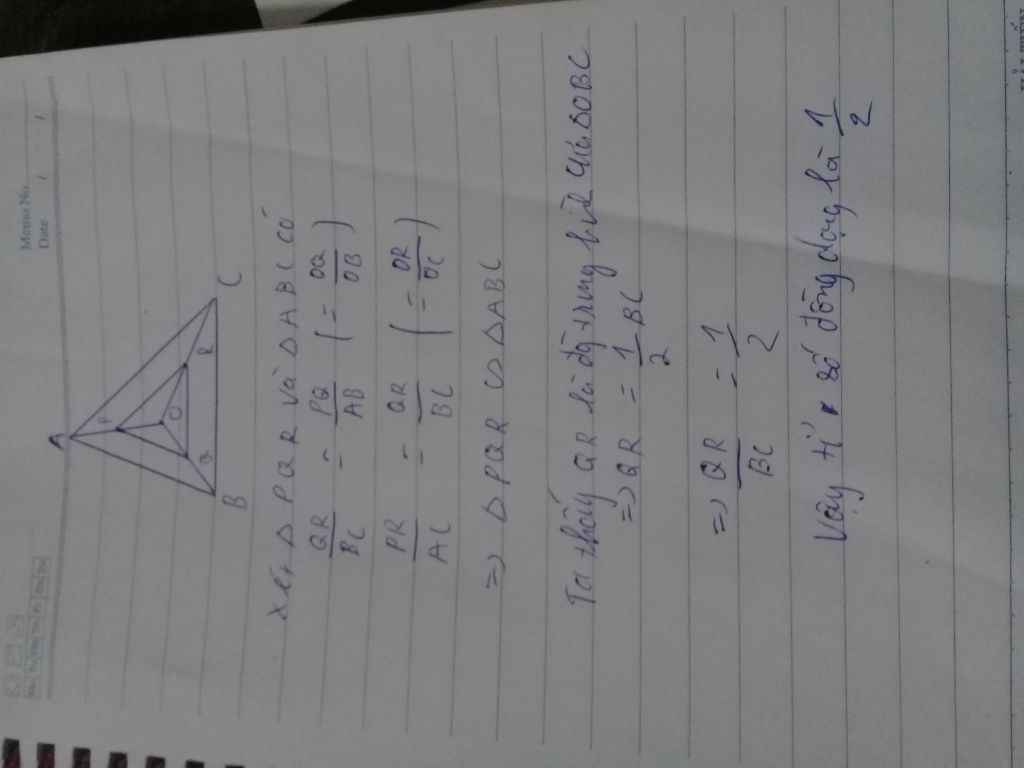 Memo No.
Date / /
Mo Tu We Th Fr Sa Su
A
P
O
Q
R
B
C
Xét Δ PQR và Δ ABC có
QR/BC = PQ/AB (= OQ/OB)
PR/AC = QR/BC (= OR/OC)
=> Δ PQR ∽ Δ ABC
Ta thấy QR là đg trung bình của ΔOBC
=> QR = 1/2 BC
=> QR/BC = 1/2
Vậy tỉ số đồng dạng là 1/2